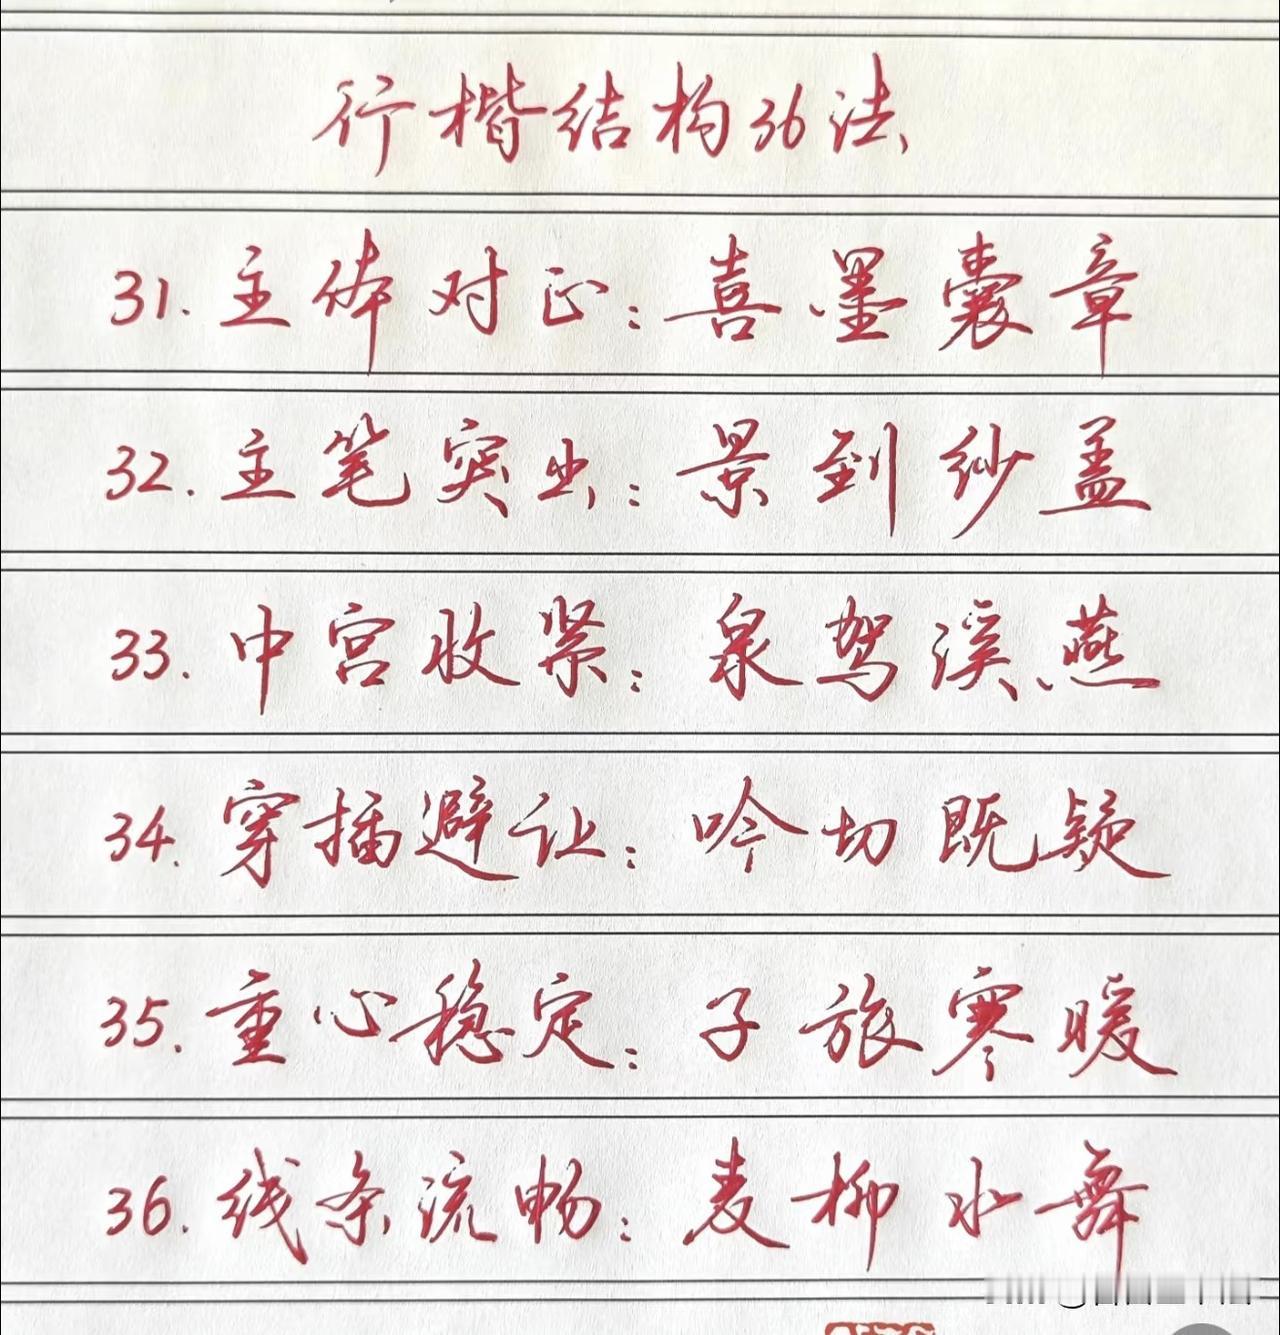 行楷结构36法
31.主体对正:喜墨囊章
32.主笔突出:景到纱盖
33.中宫收紧:泉驾溪燕
34.穿插避让:吟切既疑
35.重心稳定:子旅寒暖
36.线条流畅:麦柳水舞